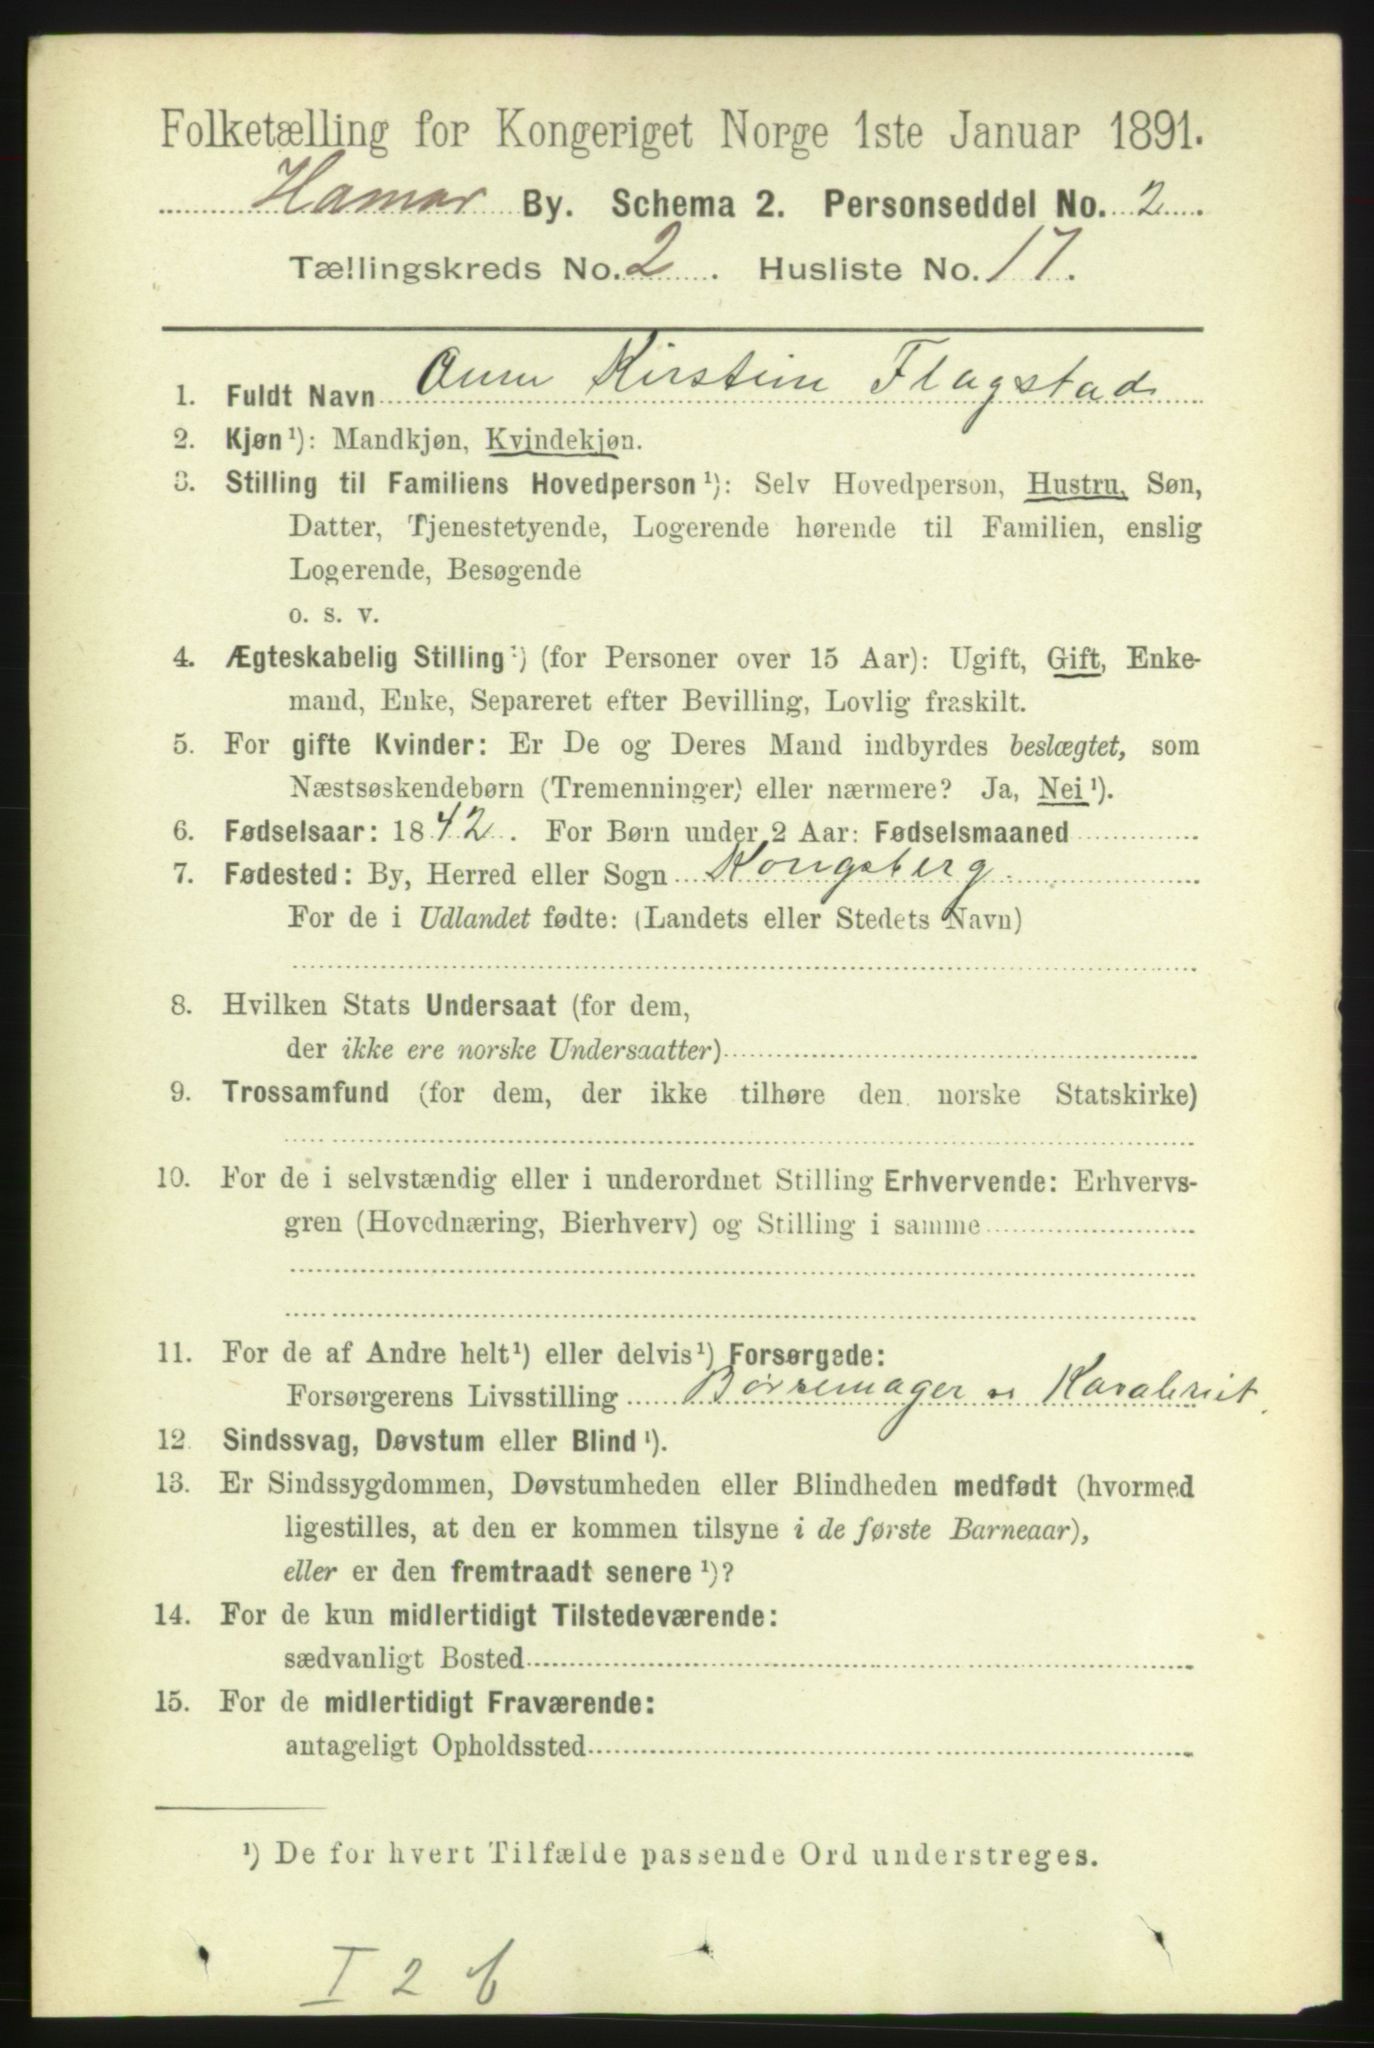 Folketælling for Kongeriget Norge 1ste Januar 1891.
Hamar By. Schema 2. Personseddel No. 2.
Tællingskreds No. 2. Husliste No. 17.
1. Fuldt Navn Kirstine Flagstad
2. Kjøn¹): Mandkjøn, Kvindekjøn.
3. Stilling til Familiens Hovedperson¹): Selv Hovedperson, Hustru, Søn,
Datter, Tjenestetyende, Logerende hørende til Familien, enslig
Logerende, Besøgende
o. s. v.
4. Ægteskabelig Stilling¹) (for Personer over 15 Aar): Ugift, Gift, Enke-
mand, Enke, Separeret efter Bevilling, Lovlig fraskilt.
5. For gifte Kvinder: Er De og Deres Mand indbyrdes beslægtet, som
Næstsøskendebørn (Tremenninger) eller nærmere? Ja, Nei¹).
6. Fødselsaar: 1842. For Børn under 2 Aar: Fødselsmaaned
7. Fødested: By, Herred eller Sogn Kongsberg.
For de i Udlandet fødte: (Landets eller Stedets Navn)
8. Hvilken Stats Undersaat (for dem,
der ikke ere norske Undersaatter)
9. Trossamfund (for dem, der ikke tilhøre den norske Statskirke)
10. For de i selvstændig eller i underordnet Stilling Erhvervende: Erhvervs-
gren (Hovednæring, Bierhverv) og Stilling i samme
11. For de af Andre helt¹) eller delvis¹) Forsørgede:
Forsørgerens Livsstilling Børsemager
12. Sindssvag, Døvstum eller Blind¹).
13. Er Sindssygdommen, Døvstumheden eller Blindheden medfødt (hvormed
ligestilles, at den er kommen tilsyne i de første Barneaar),
eller er den fremtraadt senere¹)?
14. For de kun midlertidigt Tilstedeværende:
sædvanligt Bosted
15. For de midlertidigt Fraværende:
antageligt Opholdssted
¹) De for hvert Tilfælde passende Ord understreges.
I 2 b